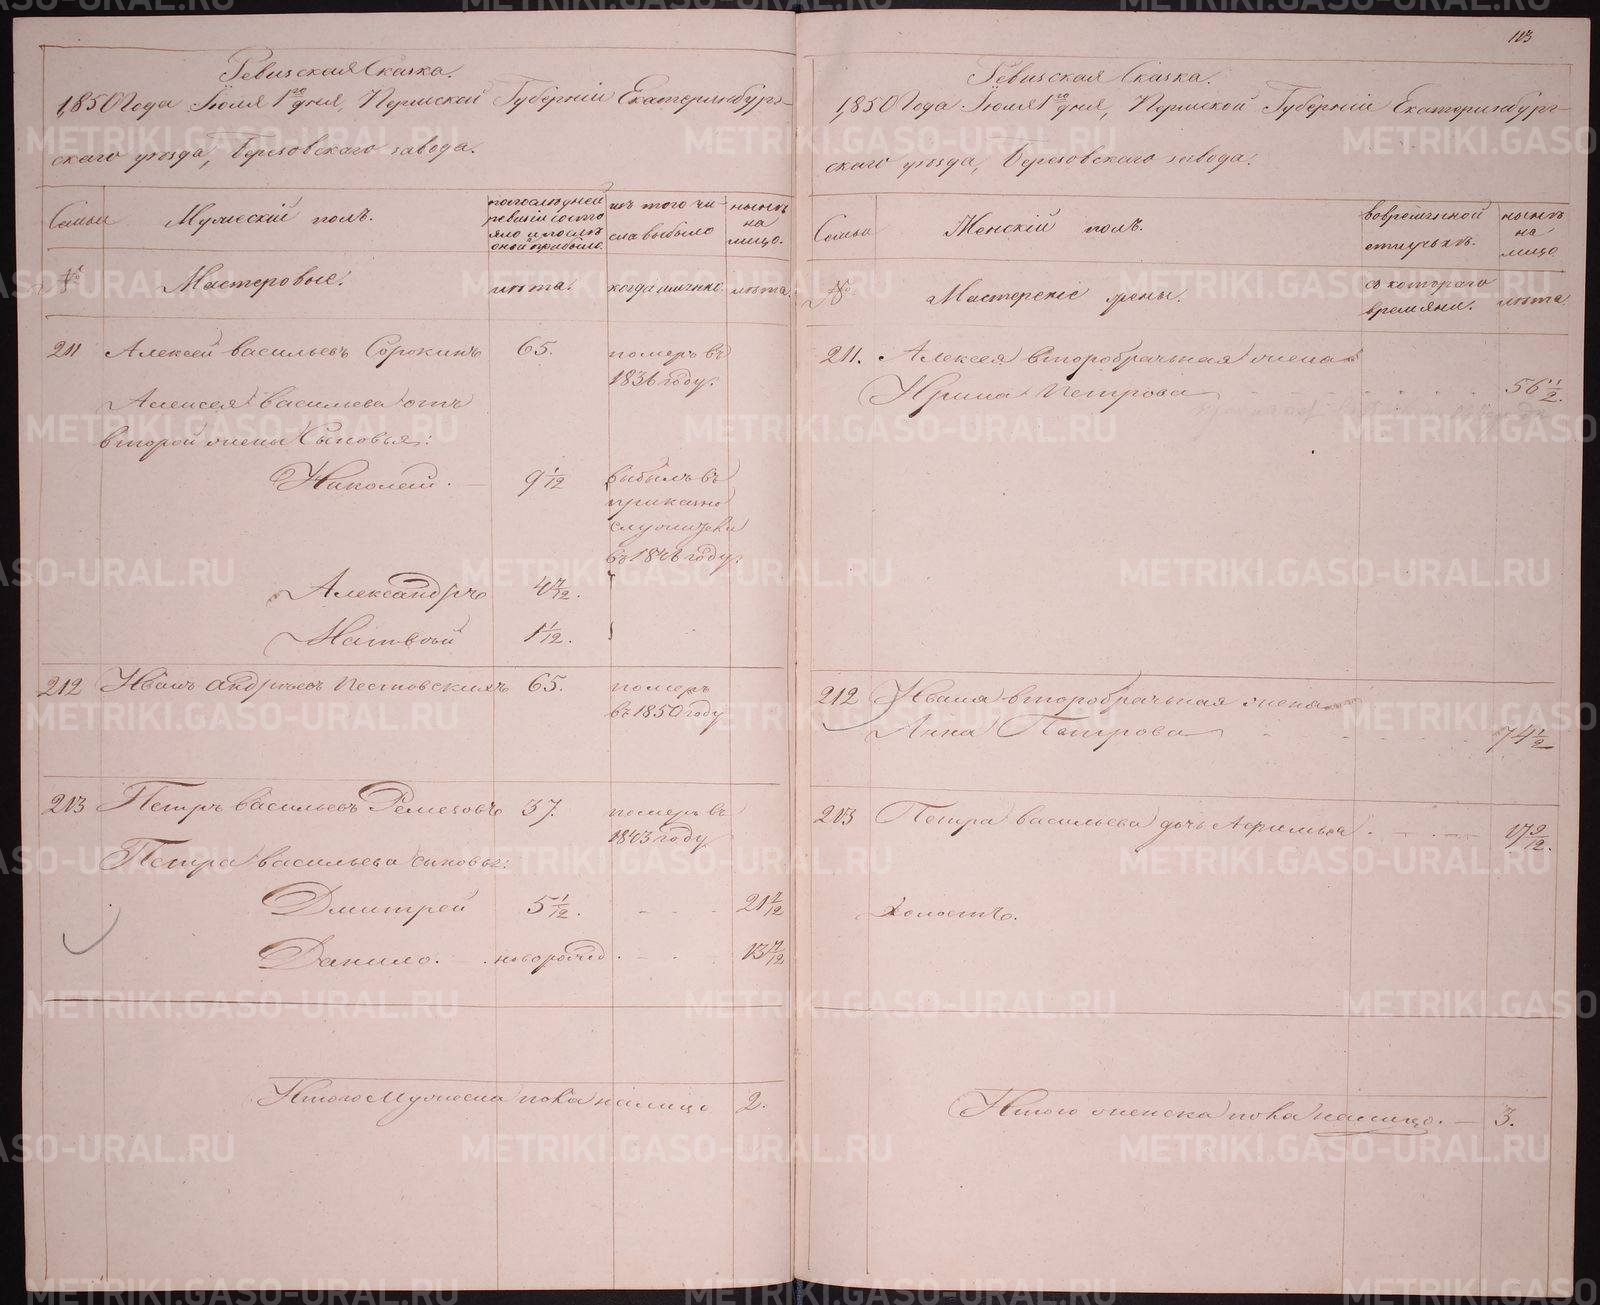 Ревизская Сказка.
1850 Года Июля 1го дня, Пермской Губерніи Екатеринбург-
скаго уѣзда, Березовскаго завода.
Семьи
Мужескій полъ.
по последней
ревизіи состо
яло и после
оной прибыло.
изъ того чи-
сла выбыло
нынѣ
на
лицо.
№
Мастеровые.
лѣта.
когда именно.
лѣта.
211 Алексей Васильевъ Сорокинъ 65. померъ въ
1836 году.
Алексея Васильева отъ
второй жены Сыновья:
Николай. 9 1/12 выбылъ въ
въ 1846 году.
Александръ 4 7/12.
Матвей 1 1/12.
212 Иванъ Андреевъ Пестовскихъ 65. померъ
въ 1850 году
213 Петръ Васильевъ Ремезовъ 37. померъ въ
1843 году
Петра Васильева сыновья:
Дмитрей 5 1/12. 21 7/12
Данило. новорожд. 13 7/12
Итого Мужеска пола налицо 2.
113
Ревизская Сказка.
1850 Года Июля 1го дня, Пермской Губерніи Екатеринбург-
скаго уѣзда, Березовскаго завода.
Семьи
Женскій полъ.
во временной
отлучкѣ.
нынѣ
на
лицо
№
Мастерскіе жены.
съ котораго
времяни.
лѣта
211. Алексея второбрачная жена
Ирина Петрова 56 1/2.
212 Ивана второбрачная жена
Анна Петрова 74 1/2
213 Петра Васильева дочь Афимья 17 9/12.
Холостъ.
Итого женска пола налицо. 3.
METRIKI.GASO-URAL.RU